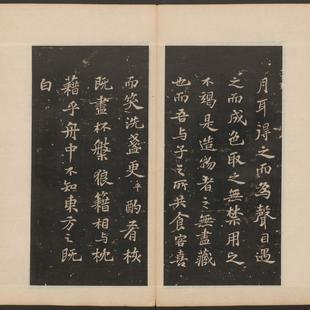 月耳得之而為聲目遇
之而成色取之無禁用之
不竭是造物者之無盡藏
也而吾与子之所共食客喜
而笑洗盞更平酌肴核
既盡杯盤狼籍相与枕
藉乎舟中不知東方之既
白